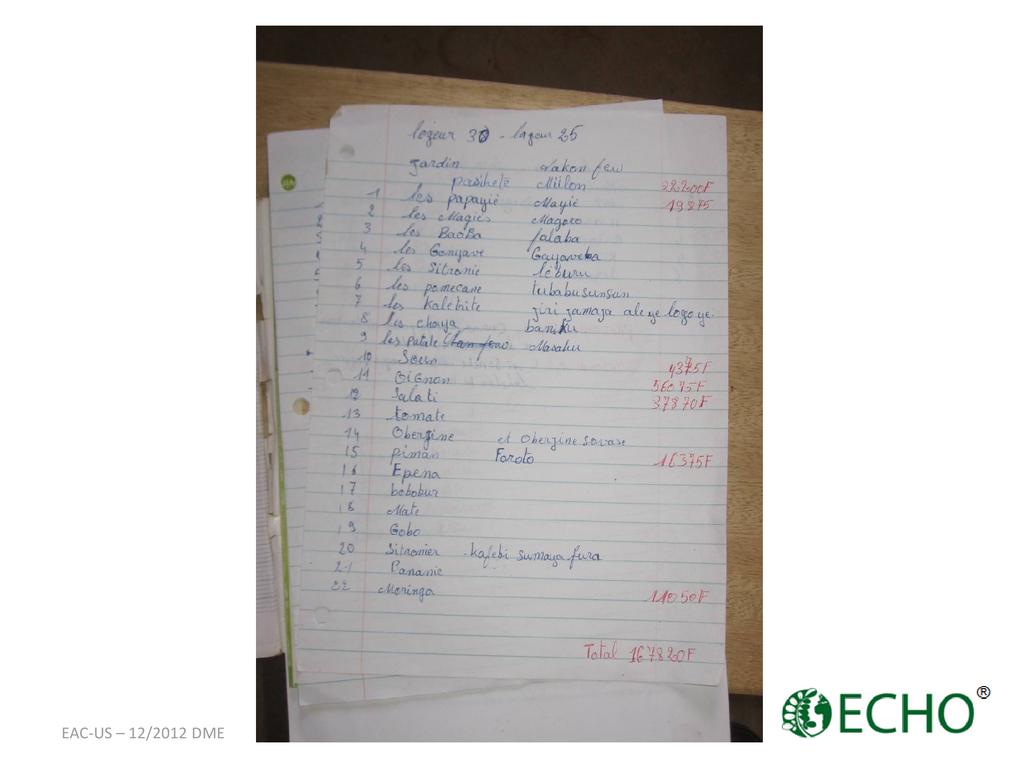 lojeur 30 - lageur 25
Jardin Nakon feu
posiheté Milon 28200F
1 les papayié Mayié 19875
2 les Magies Magoro
3 les BaoBa falaba
4 les Gonyave Gayaveba
5 les Sitronie leburu
6 les pomecane tubabusunsun
7 les Kaletiite jiri jamaja ale ye logo ye
8 les chouya baniku
9 les patate Masaku
10 Soun 4375F
11 OiGnon 56075F
12 Salati 37870F
13 tomate
14 Oberjine et Oberjine Sovase
15 piman Foroto 16375F
16 Epena
17 bobobur
18 Mate
19 Gobo
20 Sitronier Kafebi sumaya fura
21 Bananie
22 Moringa 11050F
Total 167820F
EAC-US – 12/2012 DME
ECHO®